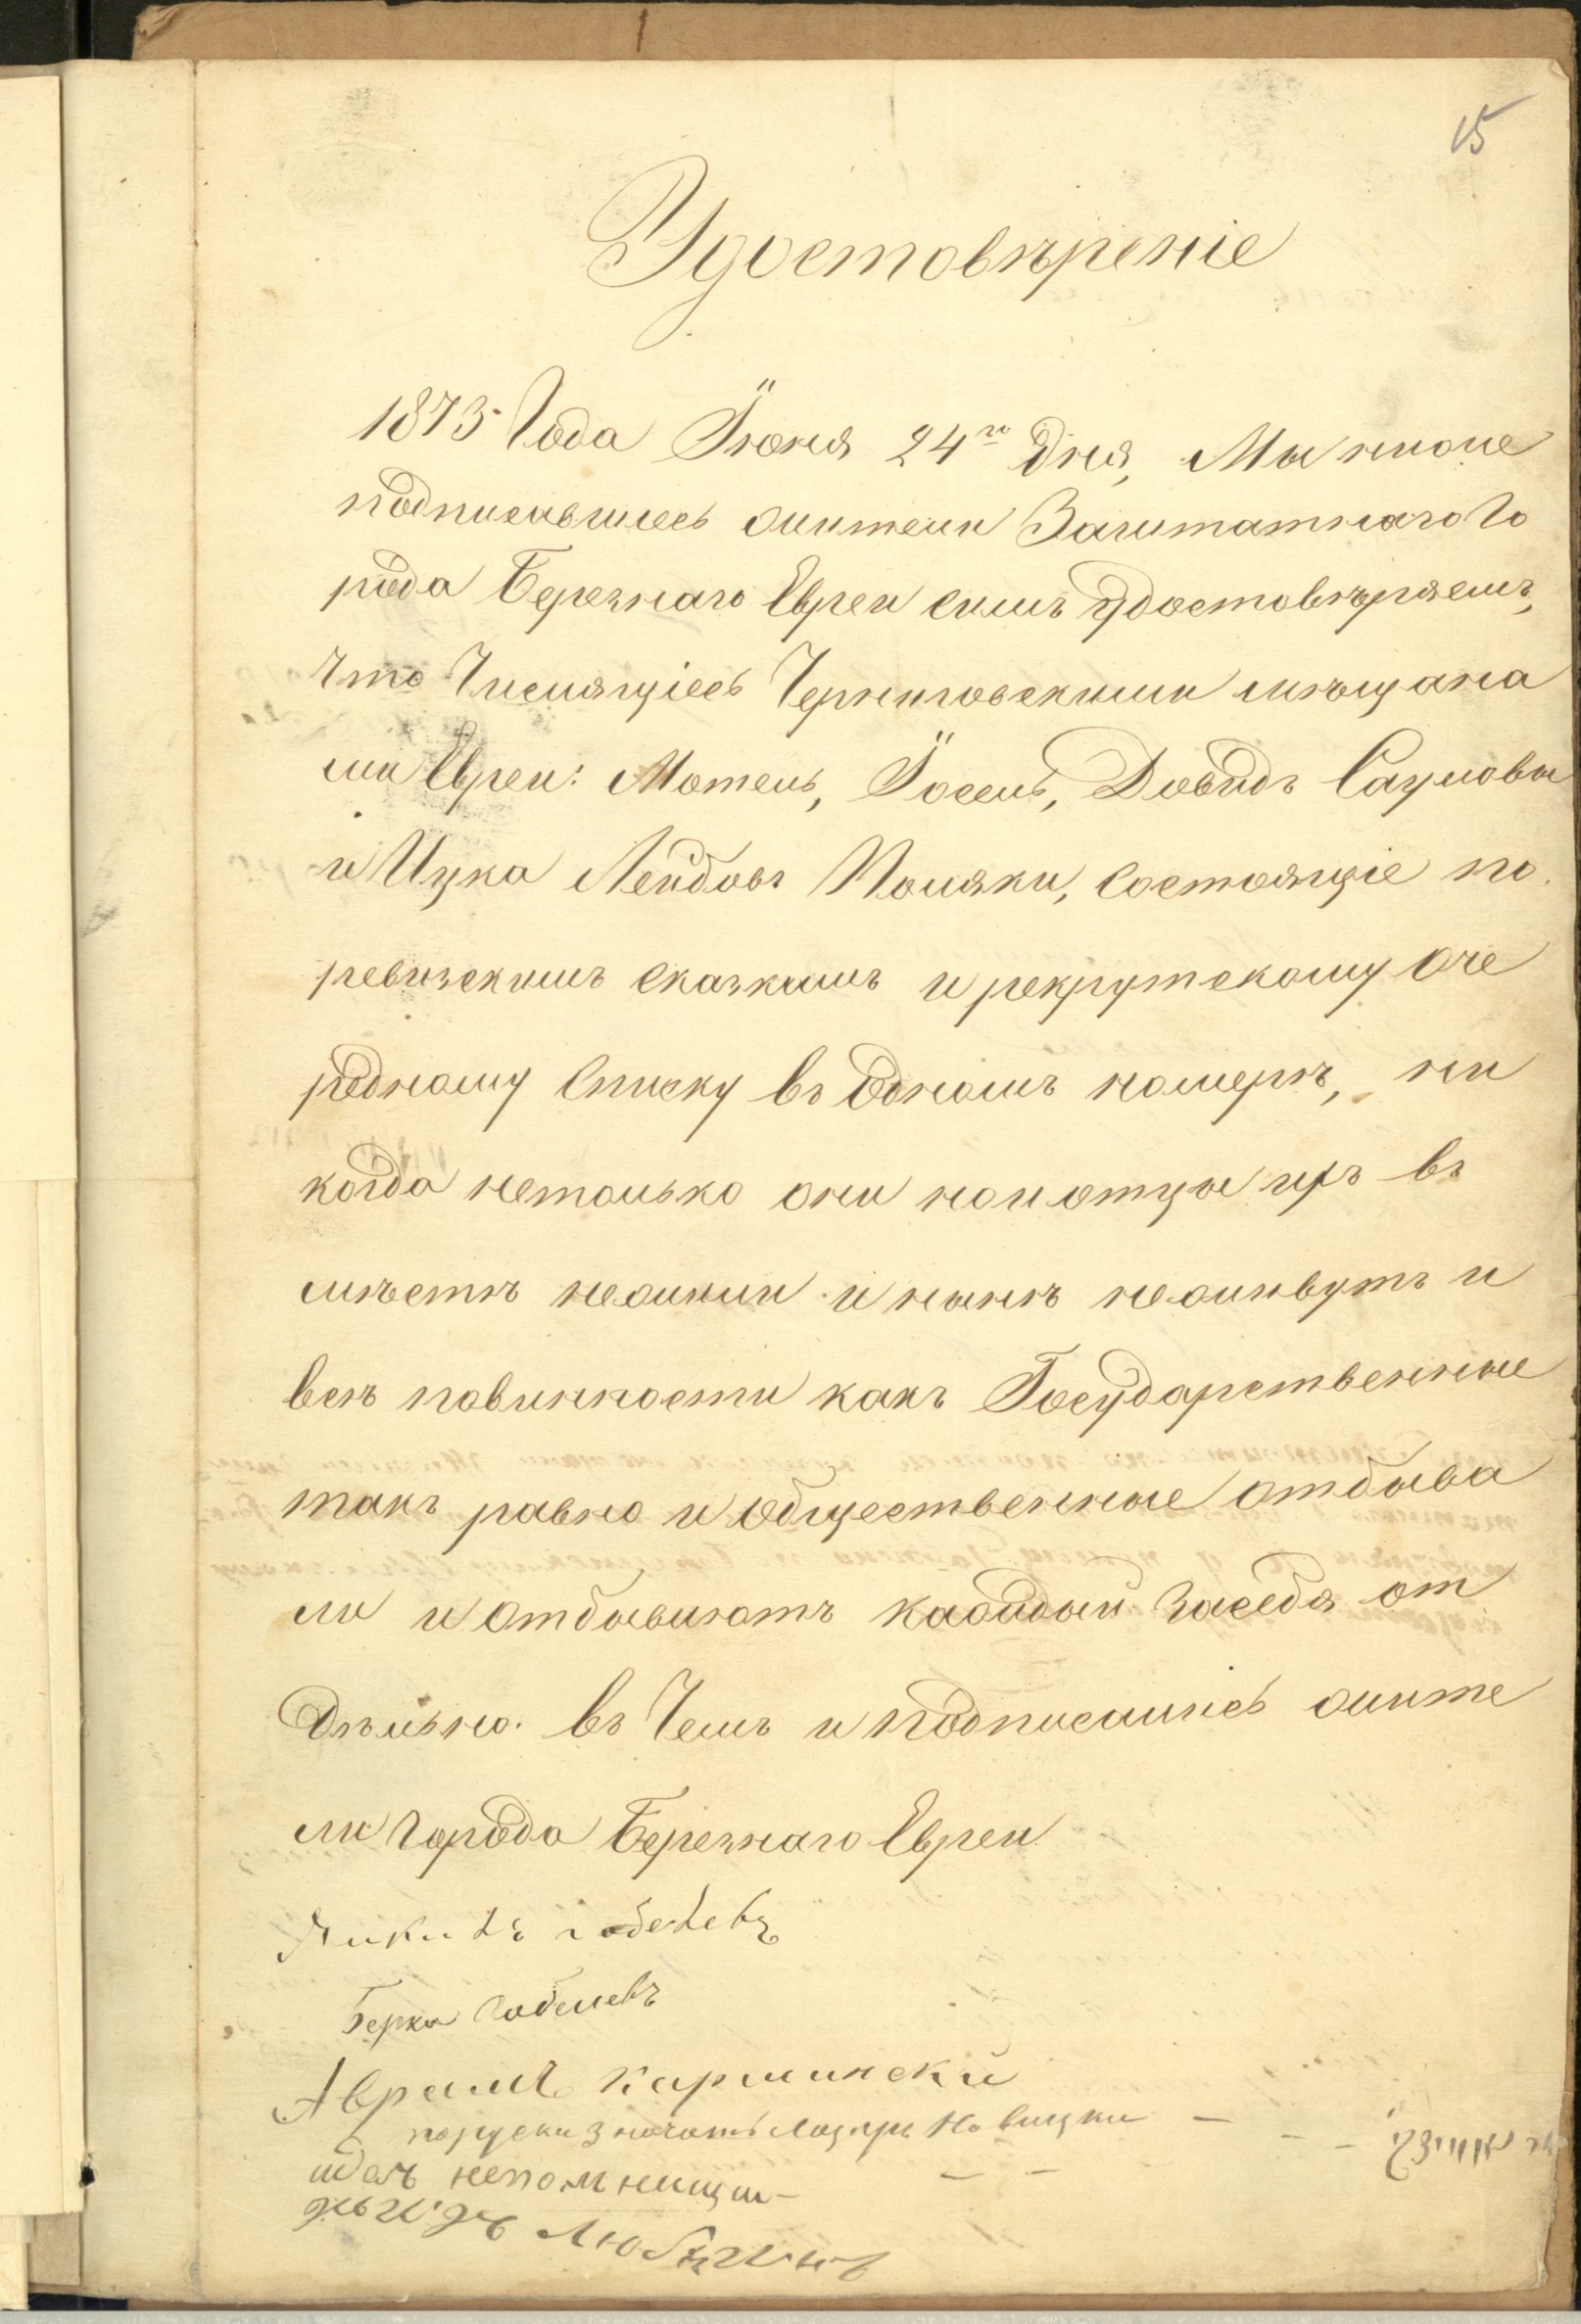 15
Удостовѣреніе
1873 Года Іюня 24го дня, Мы ниже
подписавшиесь жители Заштатнаго Го
рода Березнаго Евреи симъ удостовѣряемъ,
Что Числящіесь Черниговскими мѣщана
ми Евреи: Мотель, Іосель, Довидъ Сауловы
и Ицка Лейбовъ Поляки, Состоящіе по
ревизскимъ сказкамъ и рекрутскому оче
редному Списку въ одномъ номерѣ, ни
когда нетолько они но и отцы ихъ в
мѣстѣ нежили и нынѣ неживутъ и
всѣ повинности какъ Государственные
такъ равно и общественные отбыва
ли и отбываютъ каждый засебя от
дѣльно. въ Чемъ и подписались жите
ли города Березнаго Евреи
Берка Гобелевъ
Аврамъ Карлинскій
Лазарь Новицки
непомнищи